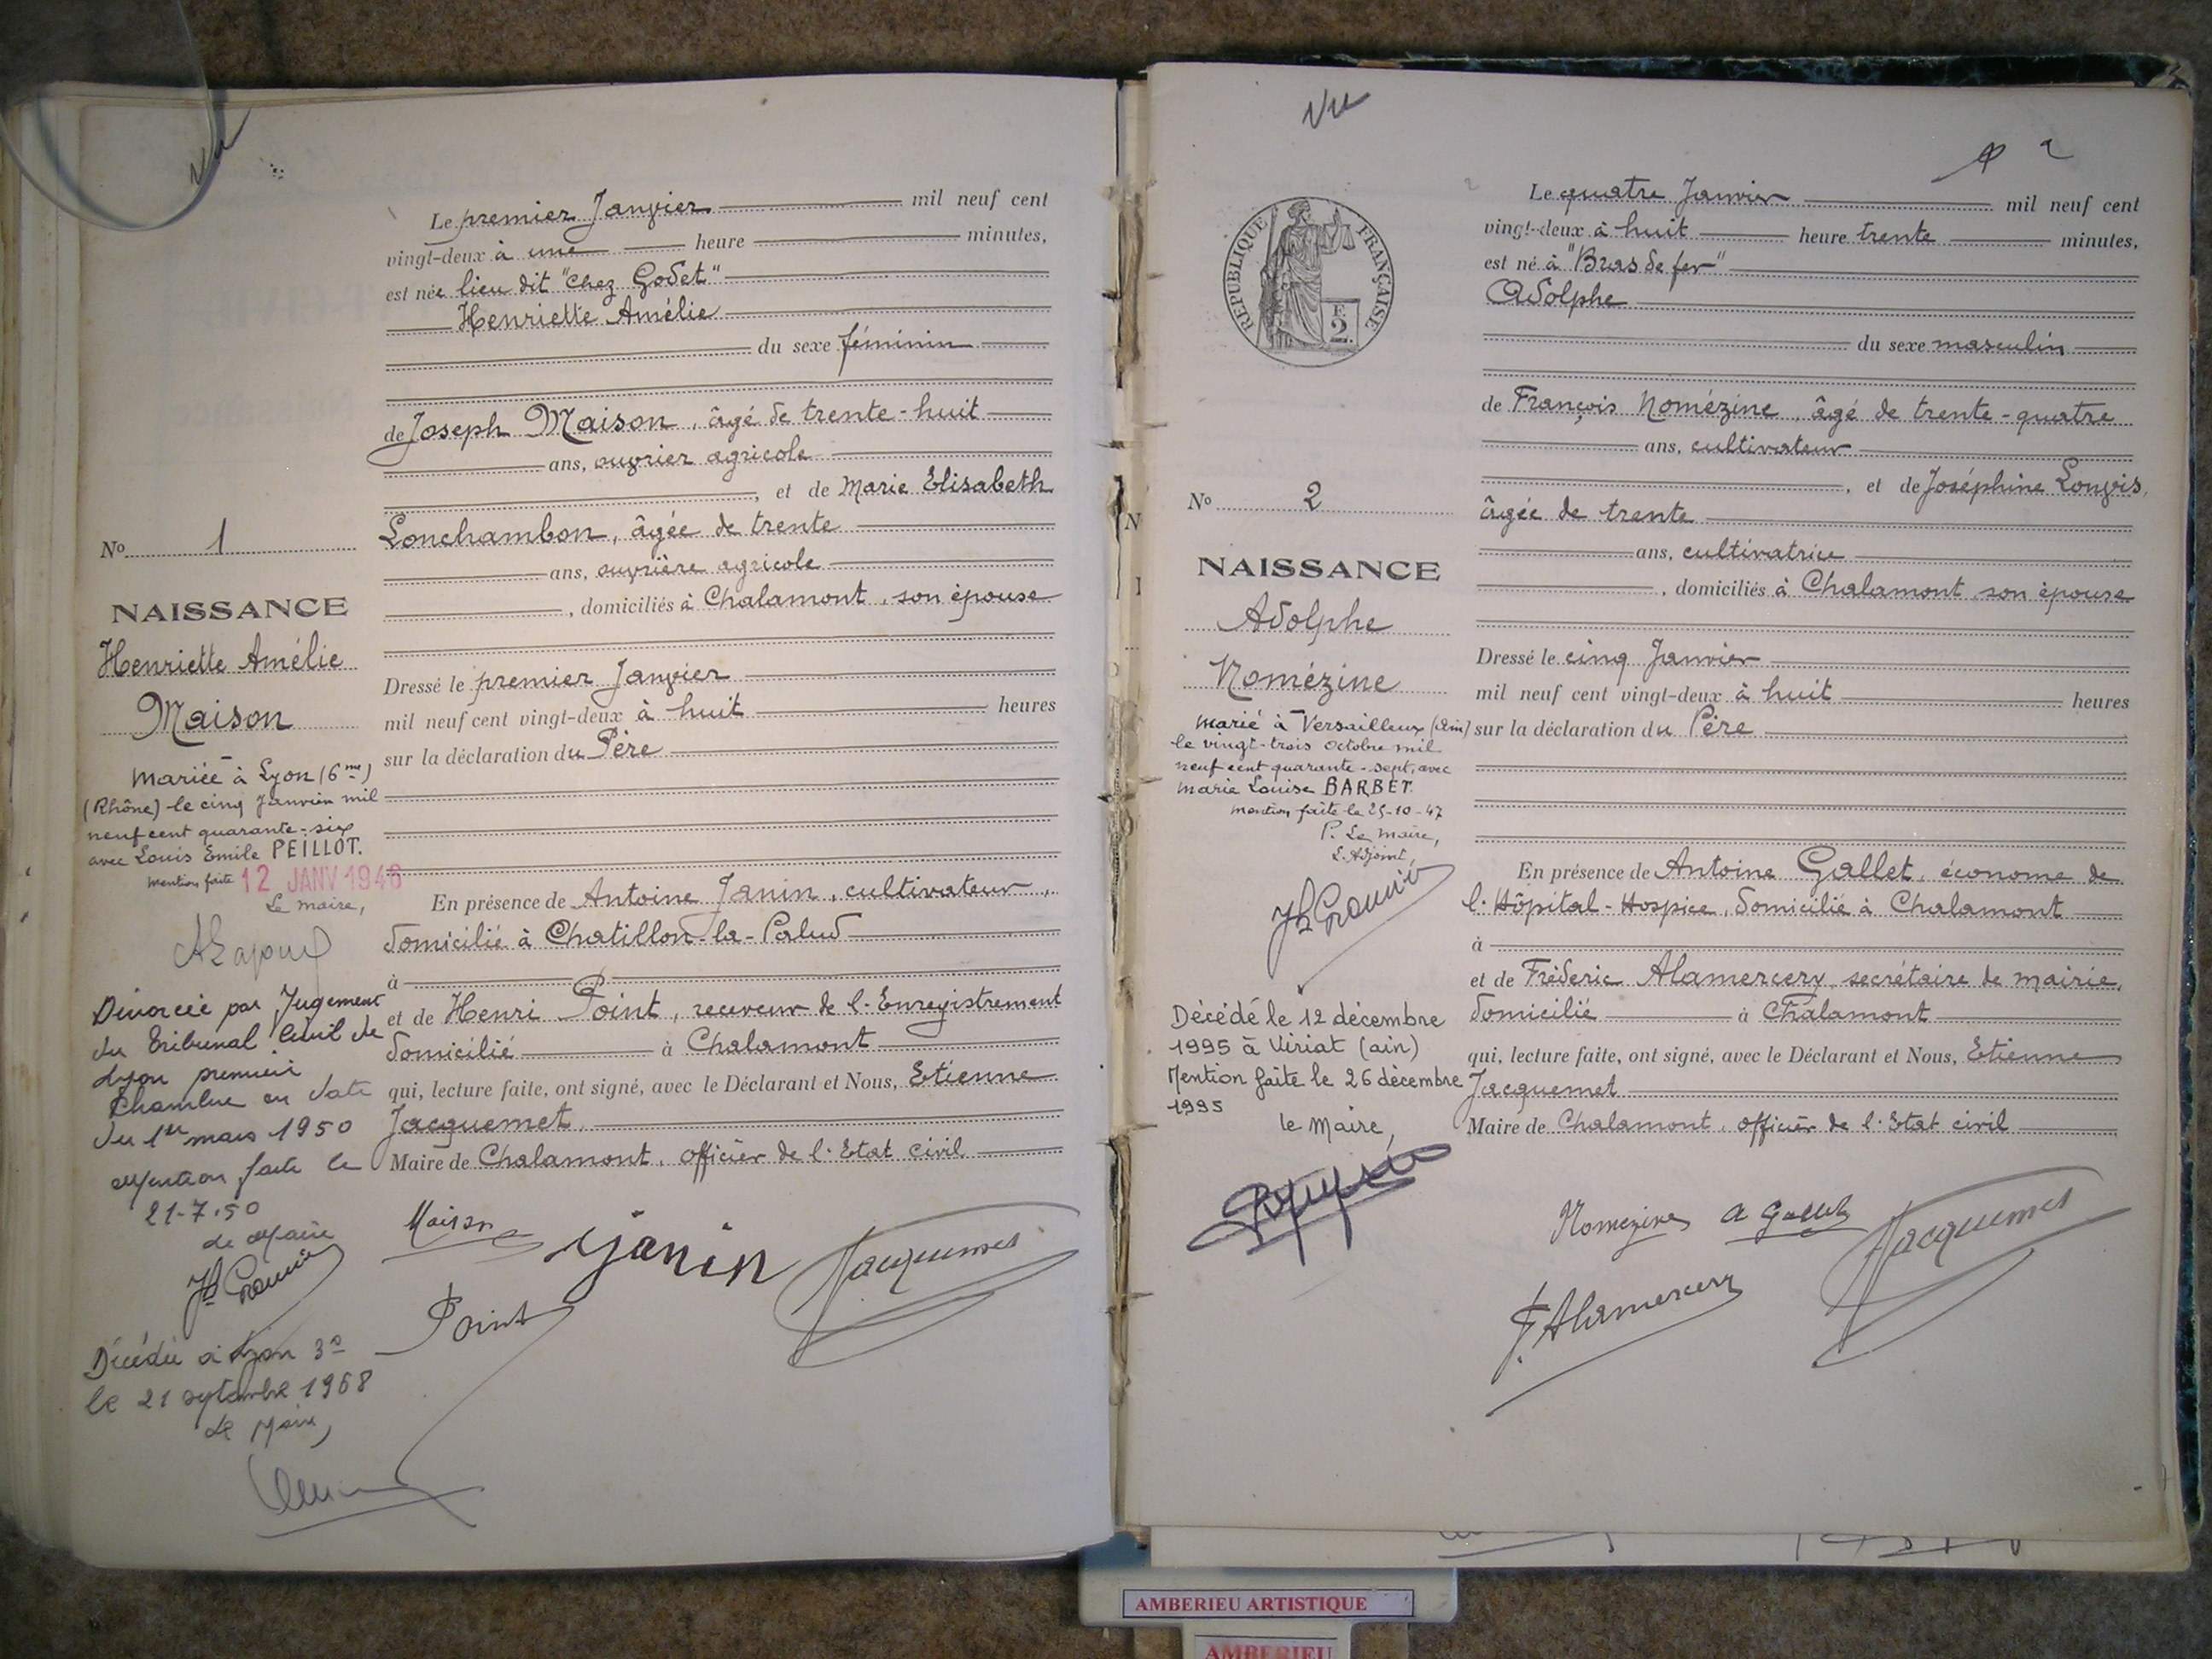 Vu
Le premier Janvier mil neuf cent
vingt-deux à une heure minutes,
est née lieu dit "Chez Godet"
Henriette Amélie
du sexe féminin
de Joseph Maison, âgé de trente-huit
ans, ouvrier agricole
, et de Marie Elisabeth
Lonchambon, âgée de trente
ans, ouvrière agricole
, domiciliés à Chalamont, son épouse
Dressé le premier Janvier
mil neuf cent vingt-deux à huit heures
sur la déclaration du Père
En présence de Antoine Janin, cultivateur,
domicilié à Chatillon-la-Palud
à
et de Henri Point, receveur de l'Enregistrement
domicilié à Chalamont
qui, lecture faite, ont signé, avec le Déclarant et Nous, Etienne
Jacquemet
Maire de Chalamont, officier de l'Etat civil
Maison Janin Jacquemet
Point
No 1
NAISSANCE
Henriette Amélie
Maison
Mariée à Lyon (6me)
(Rhône) le cinq Janvier mil
neuf cent quarante-six
avec Louis Emile PEILLOT.
Mention faite 12 JANV 1946
Le maire,
Divorcée par Jugement
du Tribunal Civil de
Lyon première
Chambre en date
du 1er mars 1950
Mention faite le
21-7-50
Le Maire
Décédée à Lyon 3e
le 21 septembre 1968
Le Maire,
Vu
2
REPUBLIQUE FRANÇAISE
E
2.
Le quatre Janvier mil neuf cent
vingt-deux à huit heure trente minutes,
est né à "Bras de fer"
Adolphe
du sexe masculin
de François Nomézine, âgé de trente-quatre
ans, cultivateur
, et de Joséphine Longis,
âgée de trente
ans, cultivatrice
, domiciliés à Chalamont son épouse
Dressé le cinq Janvier
mil neuf cent vingt-deux à huit heures
sur la déclaration du Père
En présence de Antoine Gallet, économe de
l'Hôpital-Hospice, domicilié à Chalamont
à
et de Fréderic Alamercery, secrétaire de mairie,
domicilié à Chalamont
qui, lecture faite, ont signé, avec le Déclarant et Nous, Etienne
Jacquemet
Maire de Chalamont, officier de l'Etat civil
Nomézine A Gallet Jacquemet
F. Alamercery
No 2
NAISSANCE
Adolphe
Nomézine
Marié à Versailleux (Ain)
le vingt-trois octobre mil
neuf cent quarante-sept, avec
Marie Louise BARBET.
Mention faite le 25-10-47
P. Le Maire,
L'Adjoint,
Décédé le 12 décembre
1995 à Viriat (ain)
Mention faite le 26 décembre
1995
le Maire,
AMBERIEU ARTISTIQUE
AMBERIEU